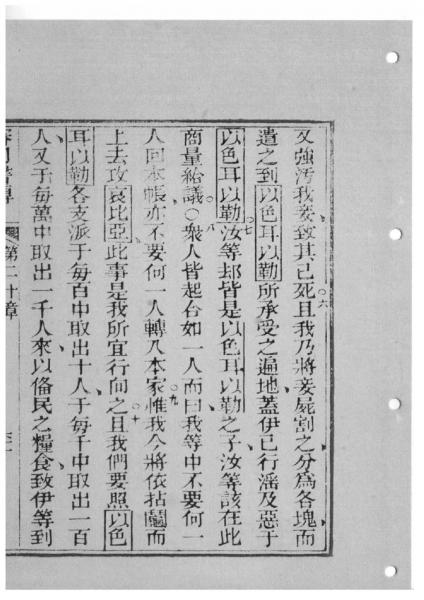 又強汚我妾致其已死且我乃將妾屍割之分爲各塊而
遣之到以色耳以勒所承受之遍地蓋伊已行淫及惡于
以色耳以勒汝等却皆是以色耳以勒之子汝等該在此
商量給議○衆人皆起合如一人而曰我等中不要何一
人回本帳亦不要何一人轉入本家惟我今將依拈鬮而
上去攻哀比亞此事是我所宜行向之且我們要照以色
耳以勒各支派于每百中取出十人于每千中取出一百
人又于每萬中取出一千人來以俻民之糧食致伊等到
第二十章
六
七
八
九
十